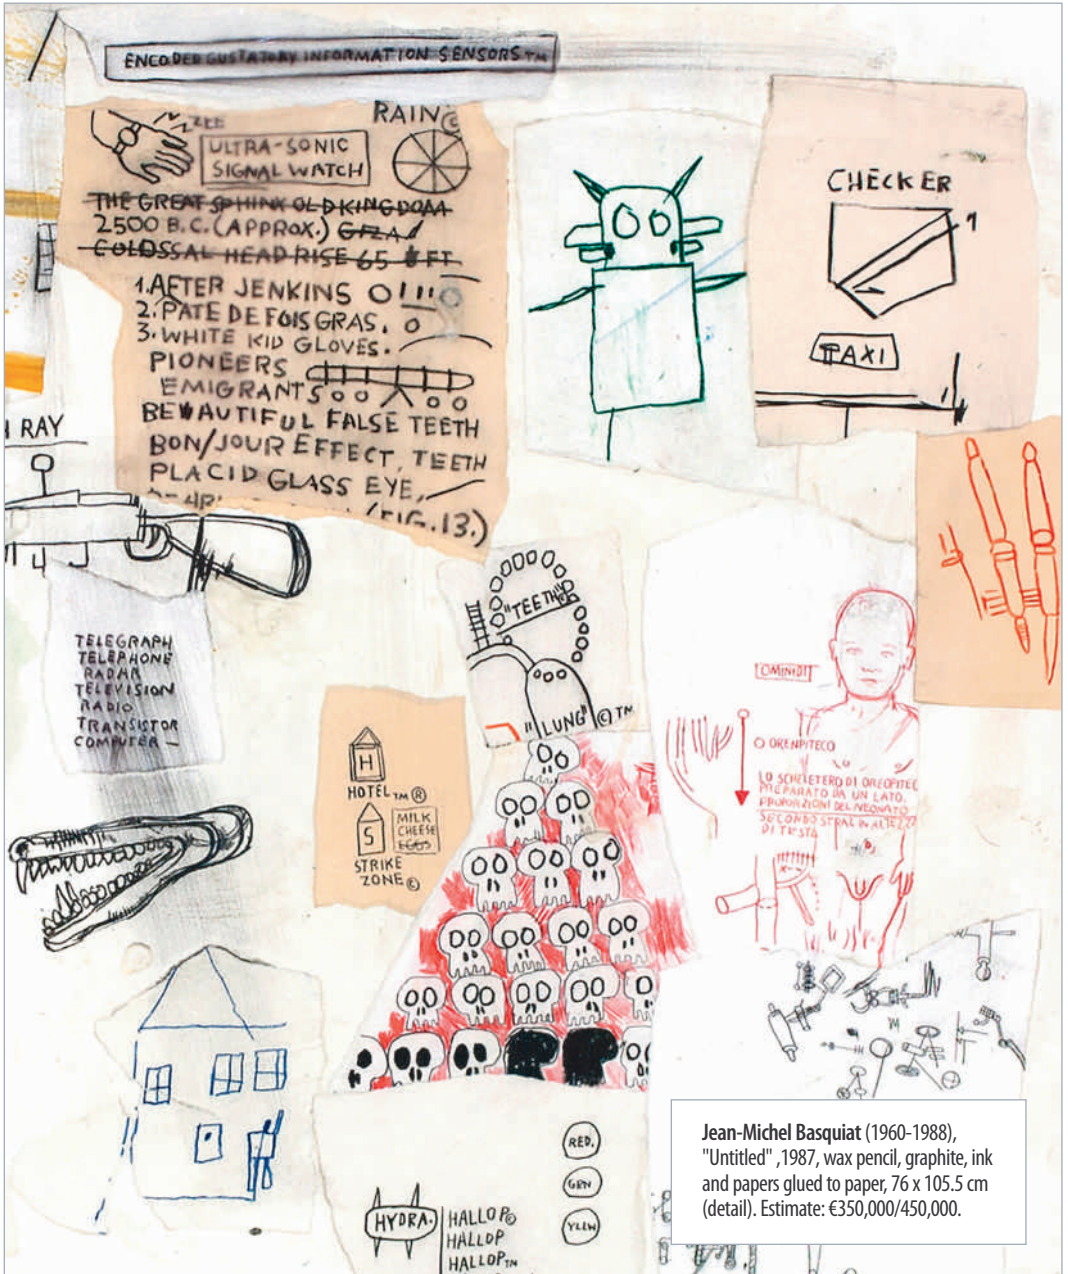 ENCODED GUSTATORY INFORMATION SENSORS TM
ZEE
RAIN ©
ULTRA-SONIC
SIGNAL WATCH
THE GREAT SPHINX OLD KINGDOM
2500 B.C. (APPROX.) GIZA
COLOSSAL HEAD RISE 65 FT
1. AFTER JENKINS
2. PATE DE FOIS GRAS.
3. WHITE KID GLOVES.
PIONEERS
EMIGRANTS
BEAUTIFUL FALSE TEETH
BON/JOUR EFFECT, TEETH
PLACID GLASS EYE,
(FIG.13.)
CHECKER
1
TAXI
RAY
TELEGRAPH
TELEPHONE
RADAR
TELEVISION
RADIO
TRANSISTOR
COMPUTER —
"TEETH"
"LUNG" © TM
H
HOTEL TM ®
S
MILK
CHEESE
EGGS
STRIKE
ZONE ©
OMINIDI
ORENPITECO
LO SCHELETERO DI OREOPITEC
PREPARATO DA UN LATO.
PROPORZIONI DEL NEONATO
SECONDO STRAL IN ALTEZZ
DI TESTA
M
RED.
GRN
YLLW
HYDRA.
HALLOP©
HALLOP
HALLOP TM
Jean-Michel Basquiat (1960-1988),
"Untitled" ,1987, wax pencil, graphite, ink
and papers glued to paper, 76 x 105.5 cm
(detail). Estimate: €350,000/450,000.